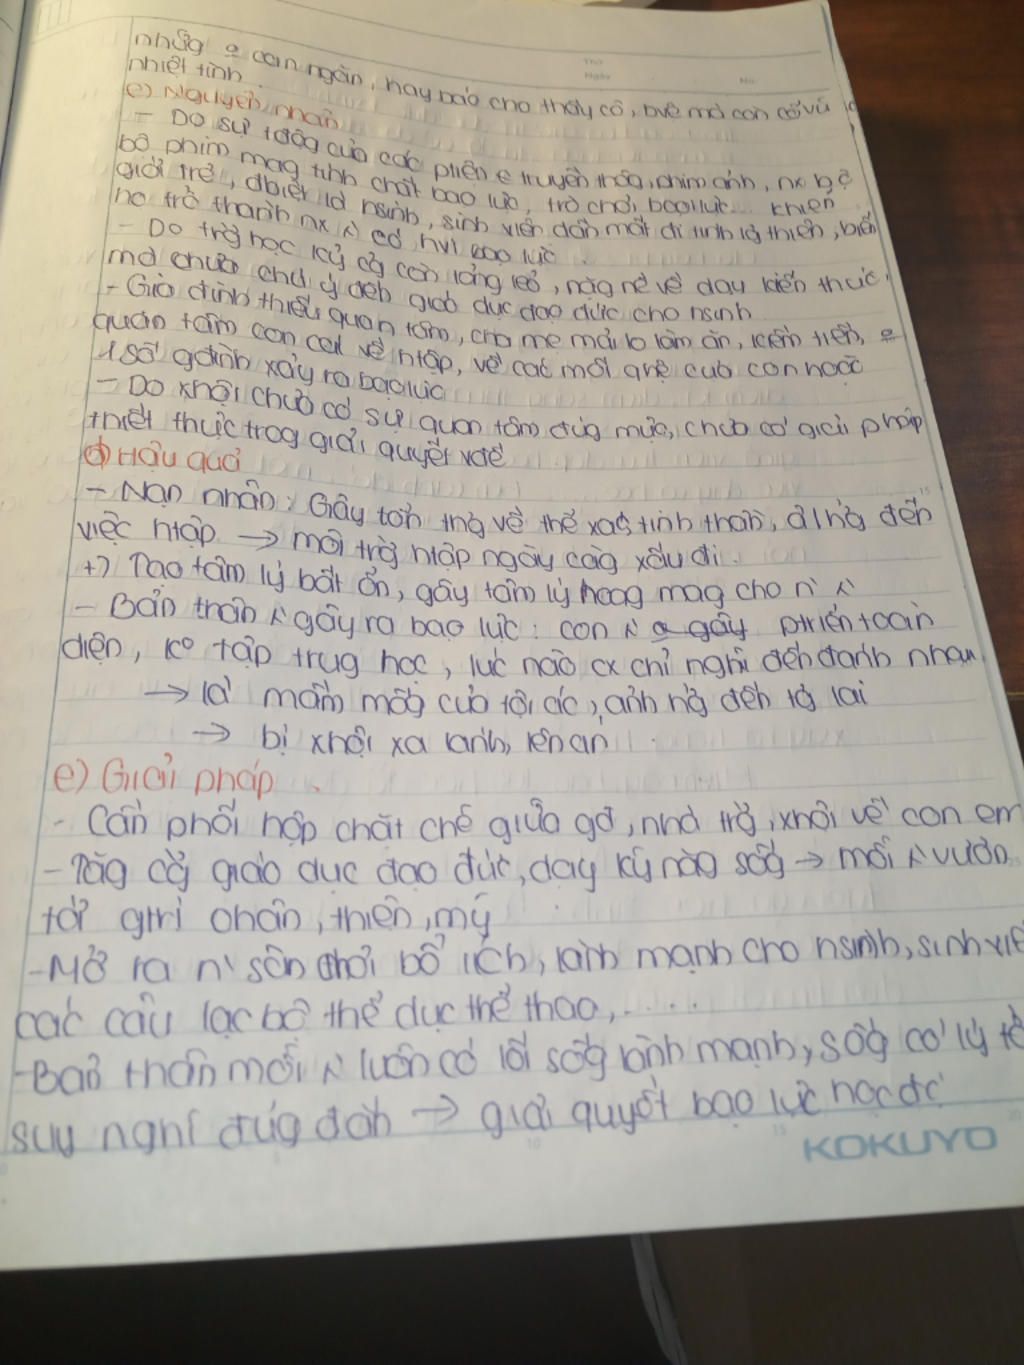 những e can ngăn, hay báo cho thầy cô, bvệ mà còn cổ vũ
nhiệt tình
c) Nguyên nhân
- Do sự tđộg của các ptiện truyền thôg, phim ảnh,
bộ phim mag tính chất bạo lực, trò chơi bạo lực... khiến
giới trẻ, đbiệt là hsinh, sinh viên dần mất đi tính lg thiện, biến
họ trở thành có hvi bạo lực.
- Do trg học kỷ cg còn lỏng lẻo, nặg nề về dạy kiến thức,
mà chưa chú ý đến giáo dục đạo đức cho hsinh
- Gia đình thiếu quan tâm, cha mẹ mải lo làm ăn, kiếm tiền,
quan tâm con cái về htập, về các mối qhệ của con hoặc
1 số gđình xảy ra bạo lực
- Do xhội chưa có sự quan tâm đúg mức, chưa có giải pháp
thiết thực trog giải quyết vđề
d) Hậu quả
- Nạn nhân: Gây tổn thg về thể xác, tinh thần, ảhg đến
việc htập → môi trg htập ngày càg xấu đi.
+) Tạo tâm lý bất ổn, gây tâm lý hoag mag cho
- Bản thân gây ra bạo lực: con ptriển toàn
diện, ko tập trug học, lúc nào cx chỉ nghĩ đến đánh nhau
→ là mầm mốg của tội ác, ảnh hg đến tg lai
→ bị xhội xa lánh, lên án
e) Giải pháp
- Cần phối hợp chặt chẽ giữa gđ, nhà trg, xhội về con em
- Tăg cg giáo dục đạo đức, dạy kỹ năg sốg → mỗi vươn
tới gtrị chân, thiện, mỹ
- Mở ra sân chơi bổ ích, lành mạnh cho hsinh, sinh viê
các câu lạc bộ thể dục thể thao,.....
- Bản thân mỗi luôn có lối sốg lành mạnh, sốg có lý tg
suy nghĩ đúg đắn → giải quyết bạo lực học đg
KOKUYO